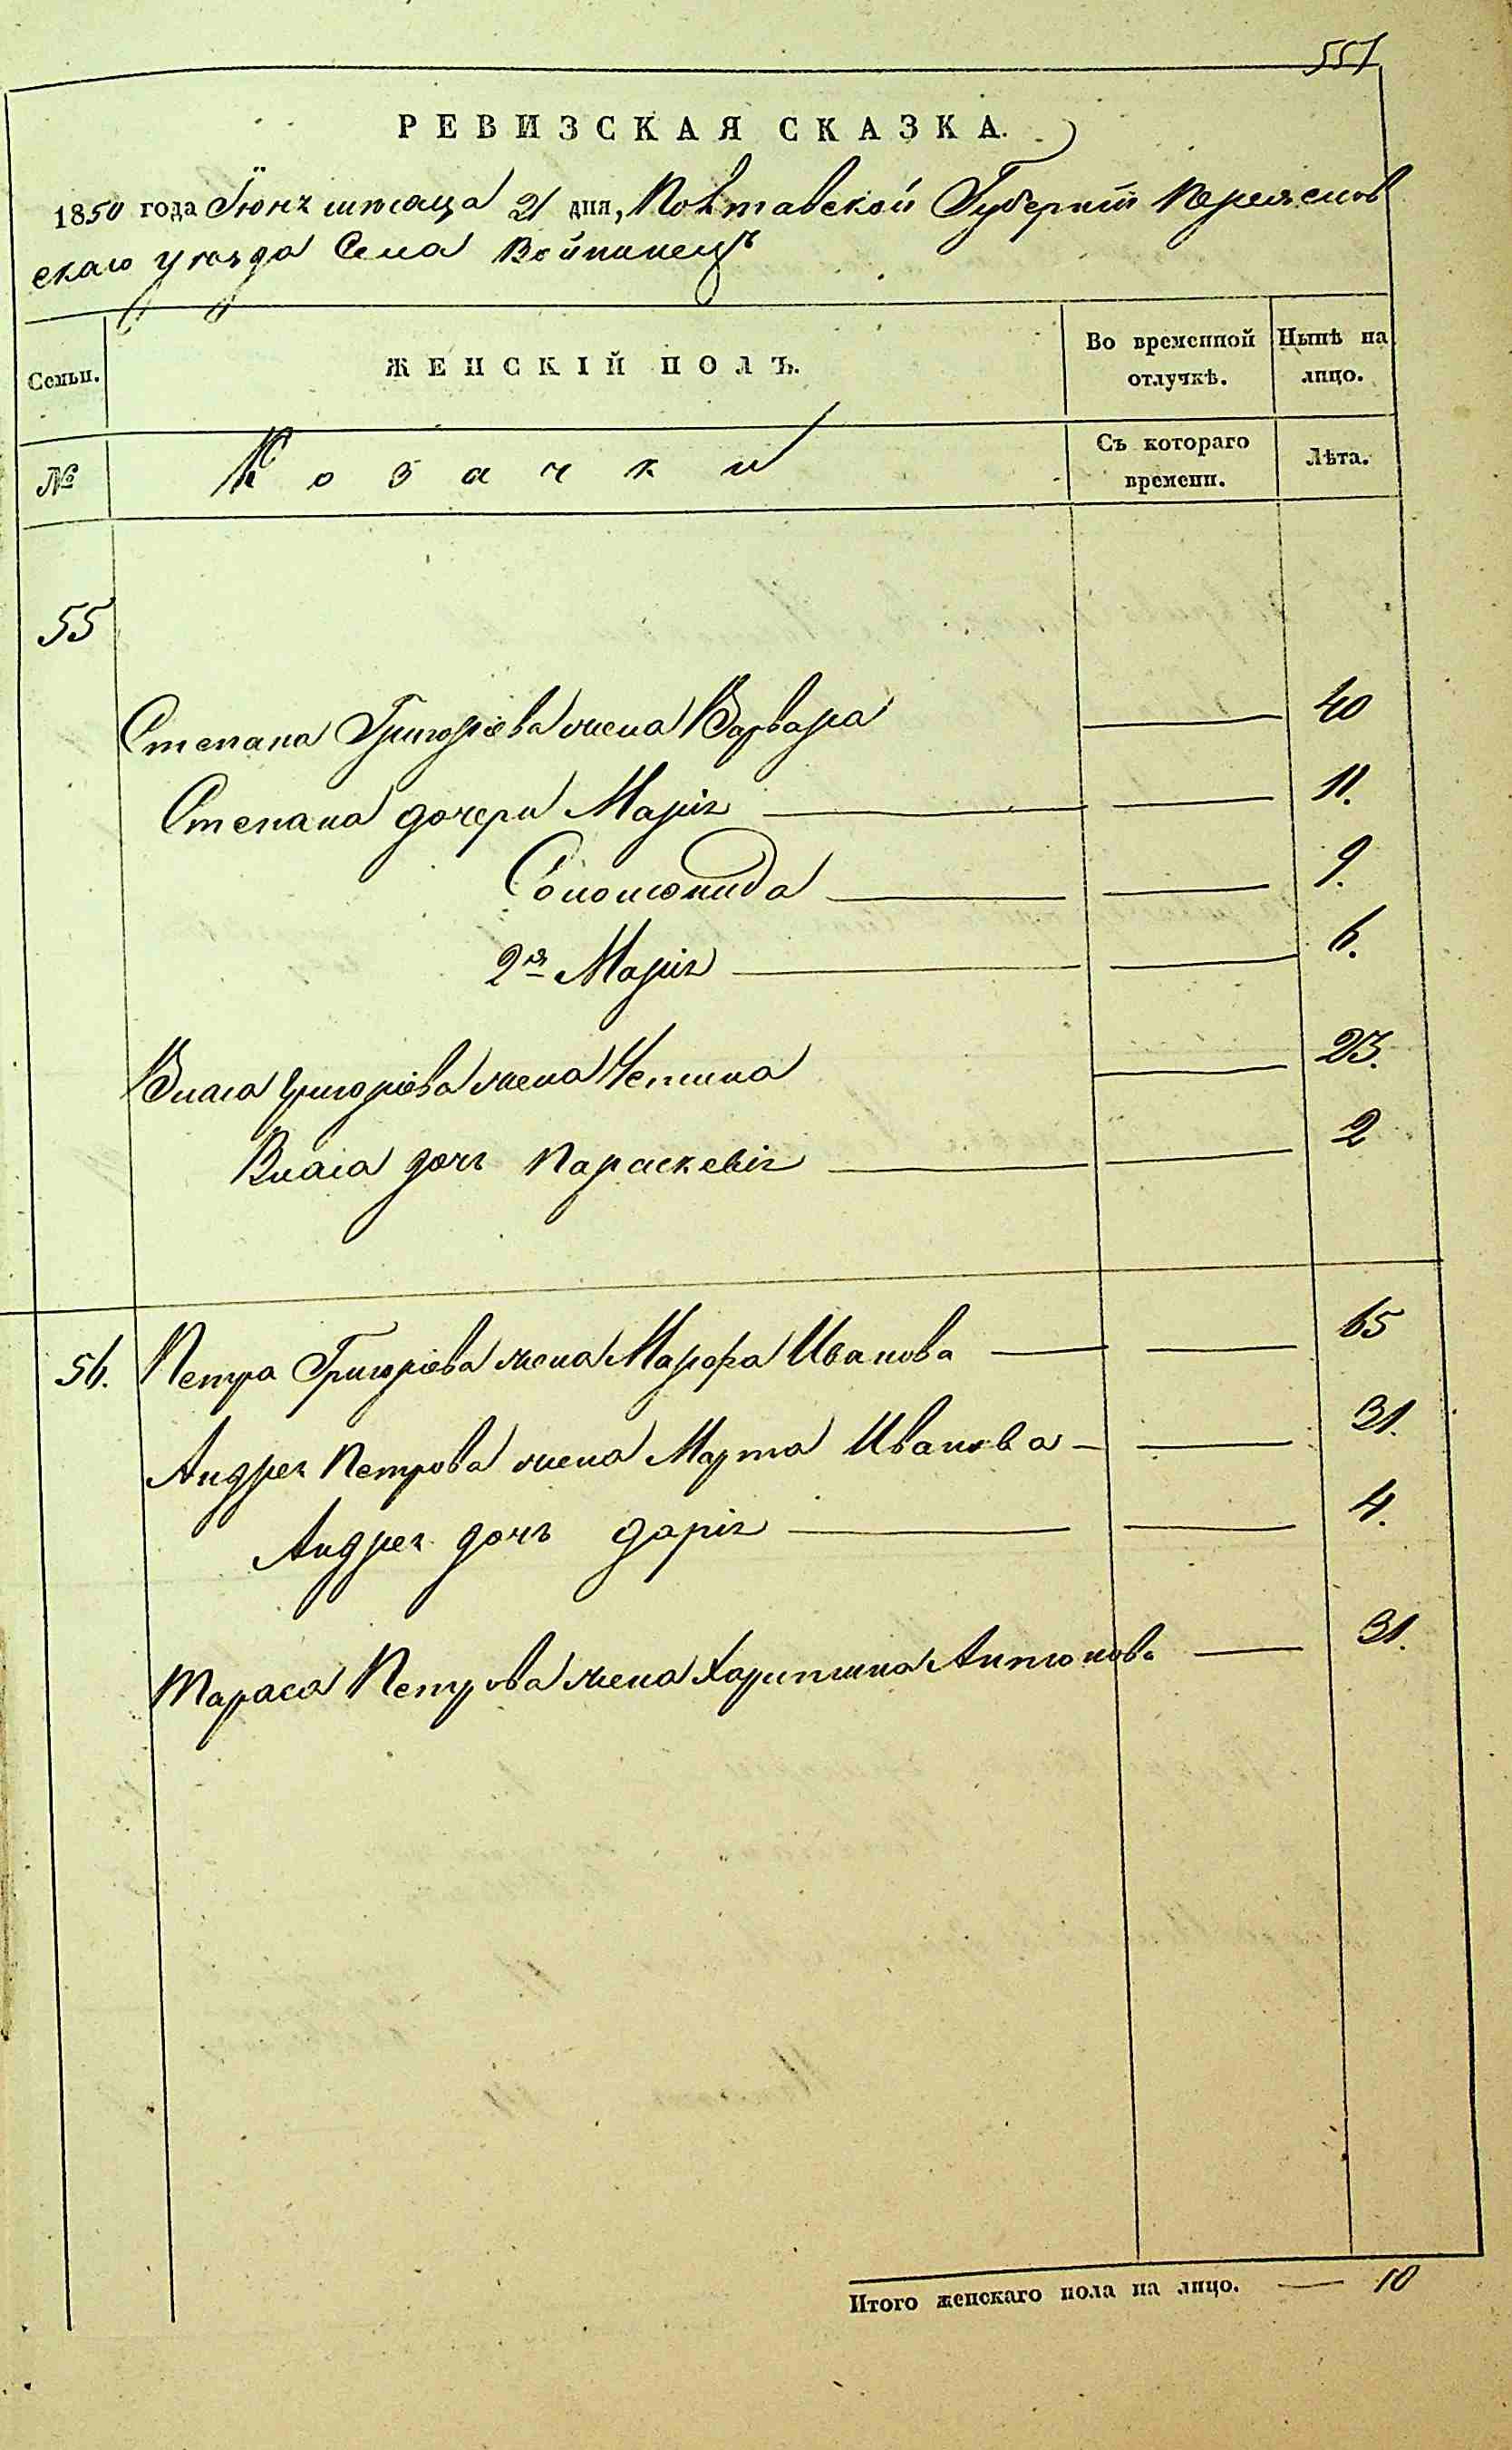 551
РЕВИЗСКАЯ СКАЗКА.
1850 года Іюня месяца 21 дня, Полтавской Губерніи Переяслов
скаго уезда Села Войтинец
Семьи.
ЖЕНСКІЙ ПОЛЪ.
Во временной отлучкѣ.
Нынѣ на лицо.
№
Козачки
Съ котораго времени.
Лѣта.
55
Степана Григоріева жена Варвара 40
Степана дочери Марія 11.
Соломонида 9.
2я Марія 6.
Власа Григоріева жена 23.
Власа дочь Параскевія 2
56. Петра Григоріева жена Марфа Иванова 65
Андрея Петрова жена Марта Иванова 31.
Андрея дочь Дарія 4.
Тараса Петрова жена Харитина Антонова 31.
Итого женскаго пола на лицо. 10